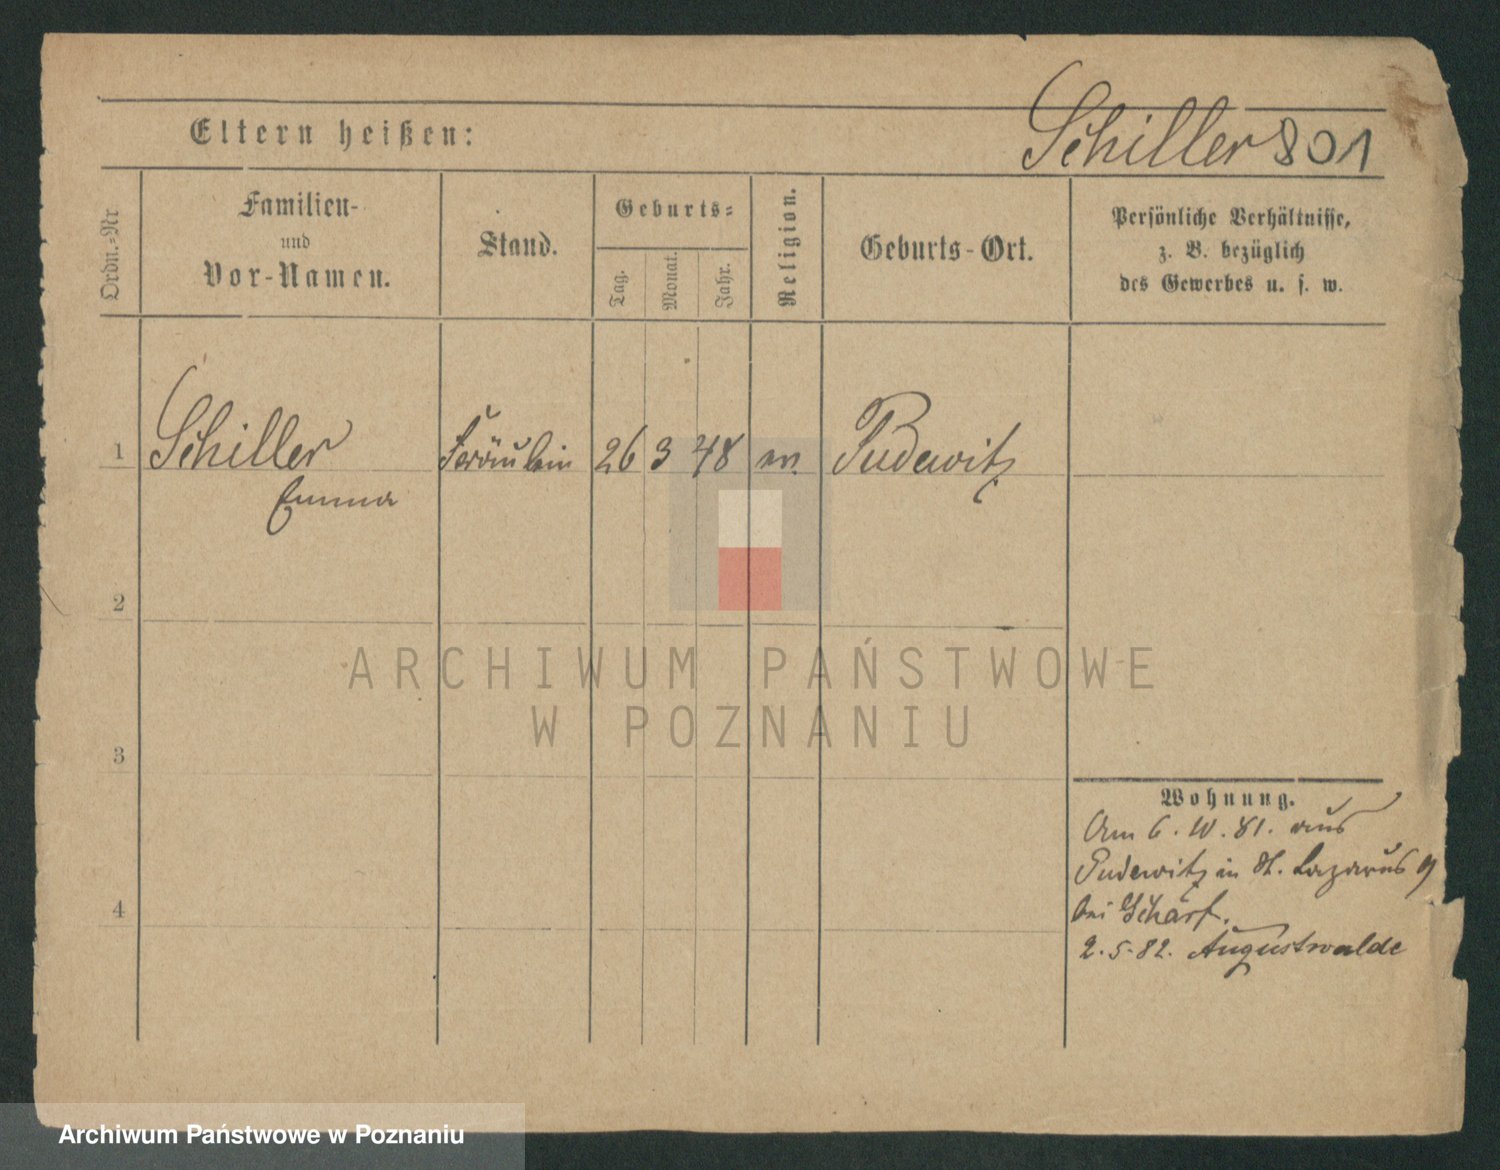 Eltern heißen:
Schiller 801
Ordn.=Nr
Familien-
und
Vor-Namen.
Stand.
Geburts=
Tag.
Monat.
Jahr.
Religion.
Geburts-Ort.
Persönliche Verhältnisse,
z. B. bezüglich
des Gewerbes u. s. w.
1 Schiller Fräulein 26 3 48 ev. Pudewitz
Emma
2
3
4
Wohnung.
Am 6. 10. 81. aus
Pudewitz in St. Lazarus 9
bei Schärf.
2.5.82. Augustwalde
ARCHIWUM PAŃSTWOWE
W POZNANIU
Archiwum Państwowe w Poznaniu